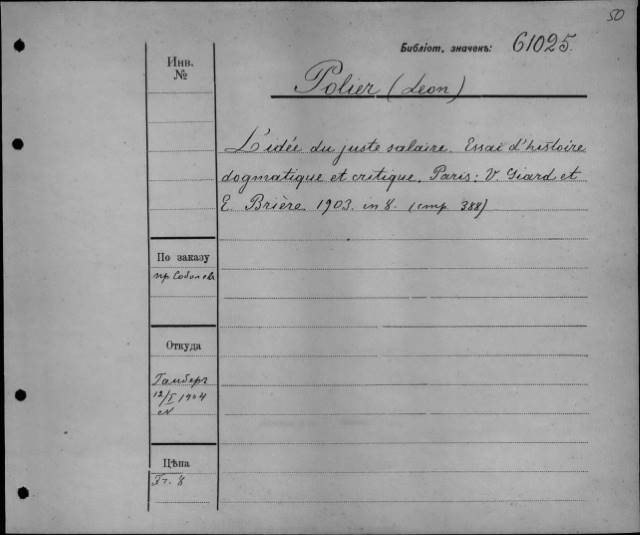 50
Библіот. значекъ: 61025.
Polier (Leon)
Инв.
№
L'idée du juste salaire. Essai d'histoire
dogmatique et critique. Paris: V. Giard et
E. Brière 1903. in 8. (стр. 388)
По заказу
пр Соболев
Откуда
Гамберг
12/I 1904
Цѣна
Fr. 8